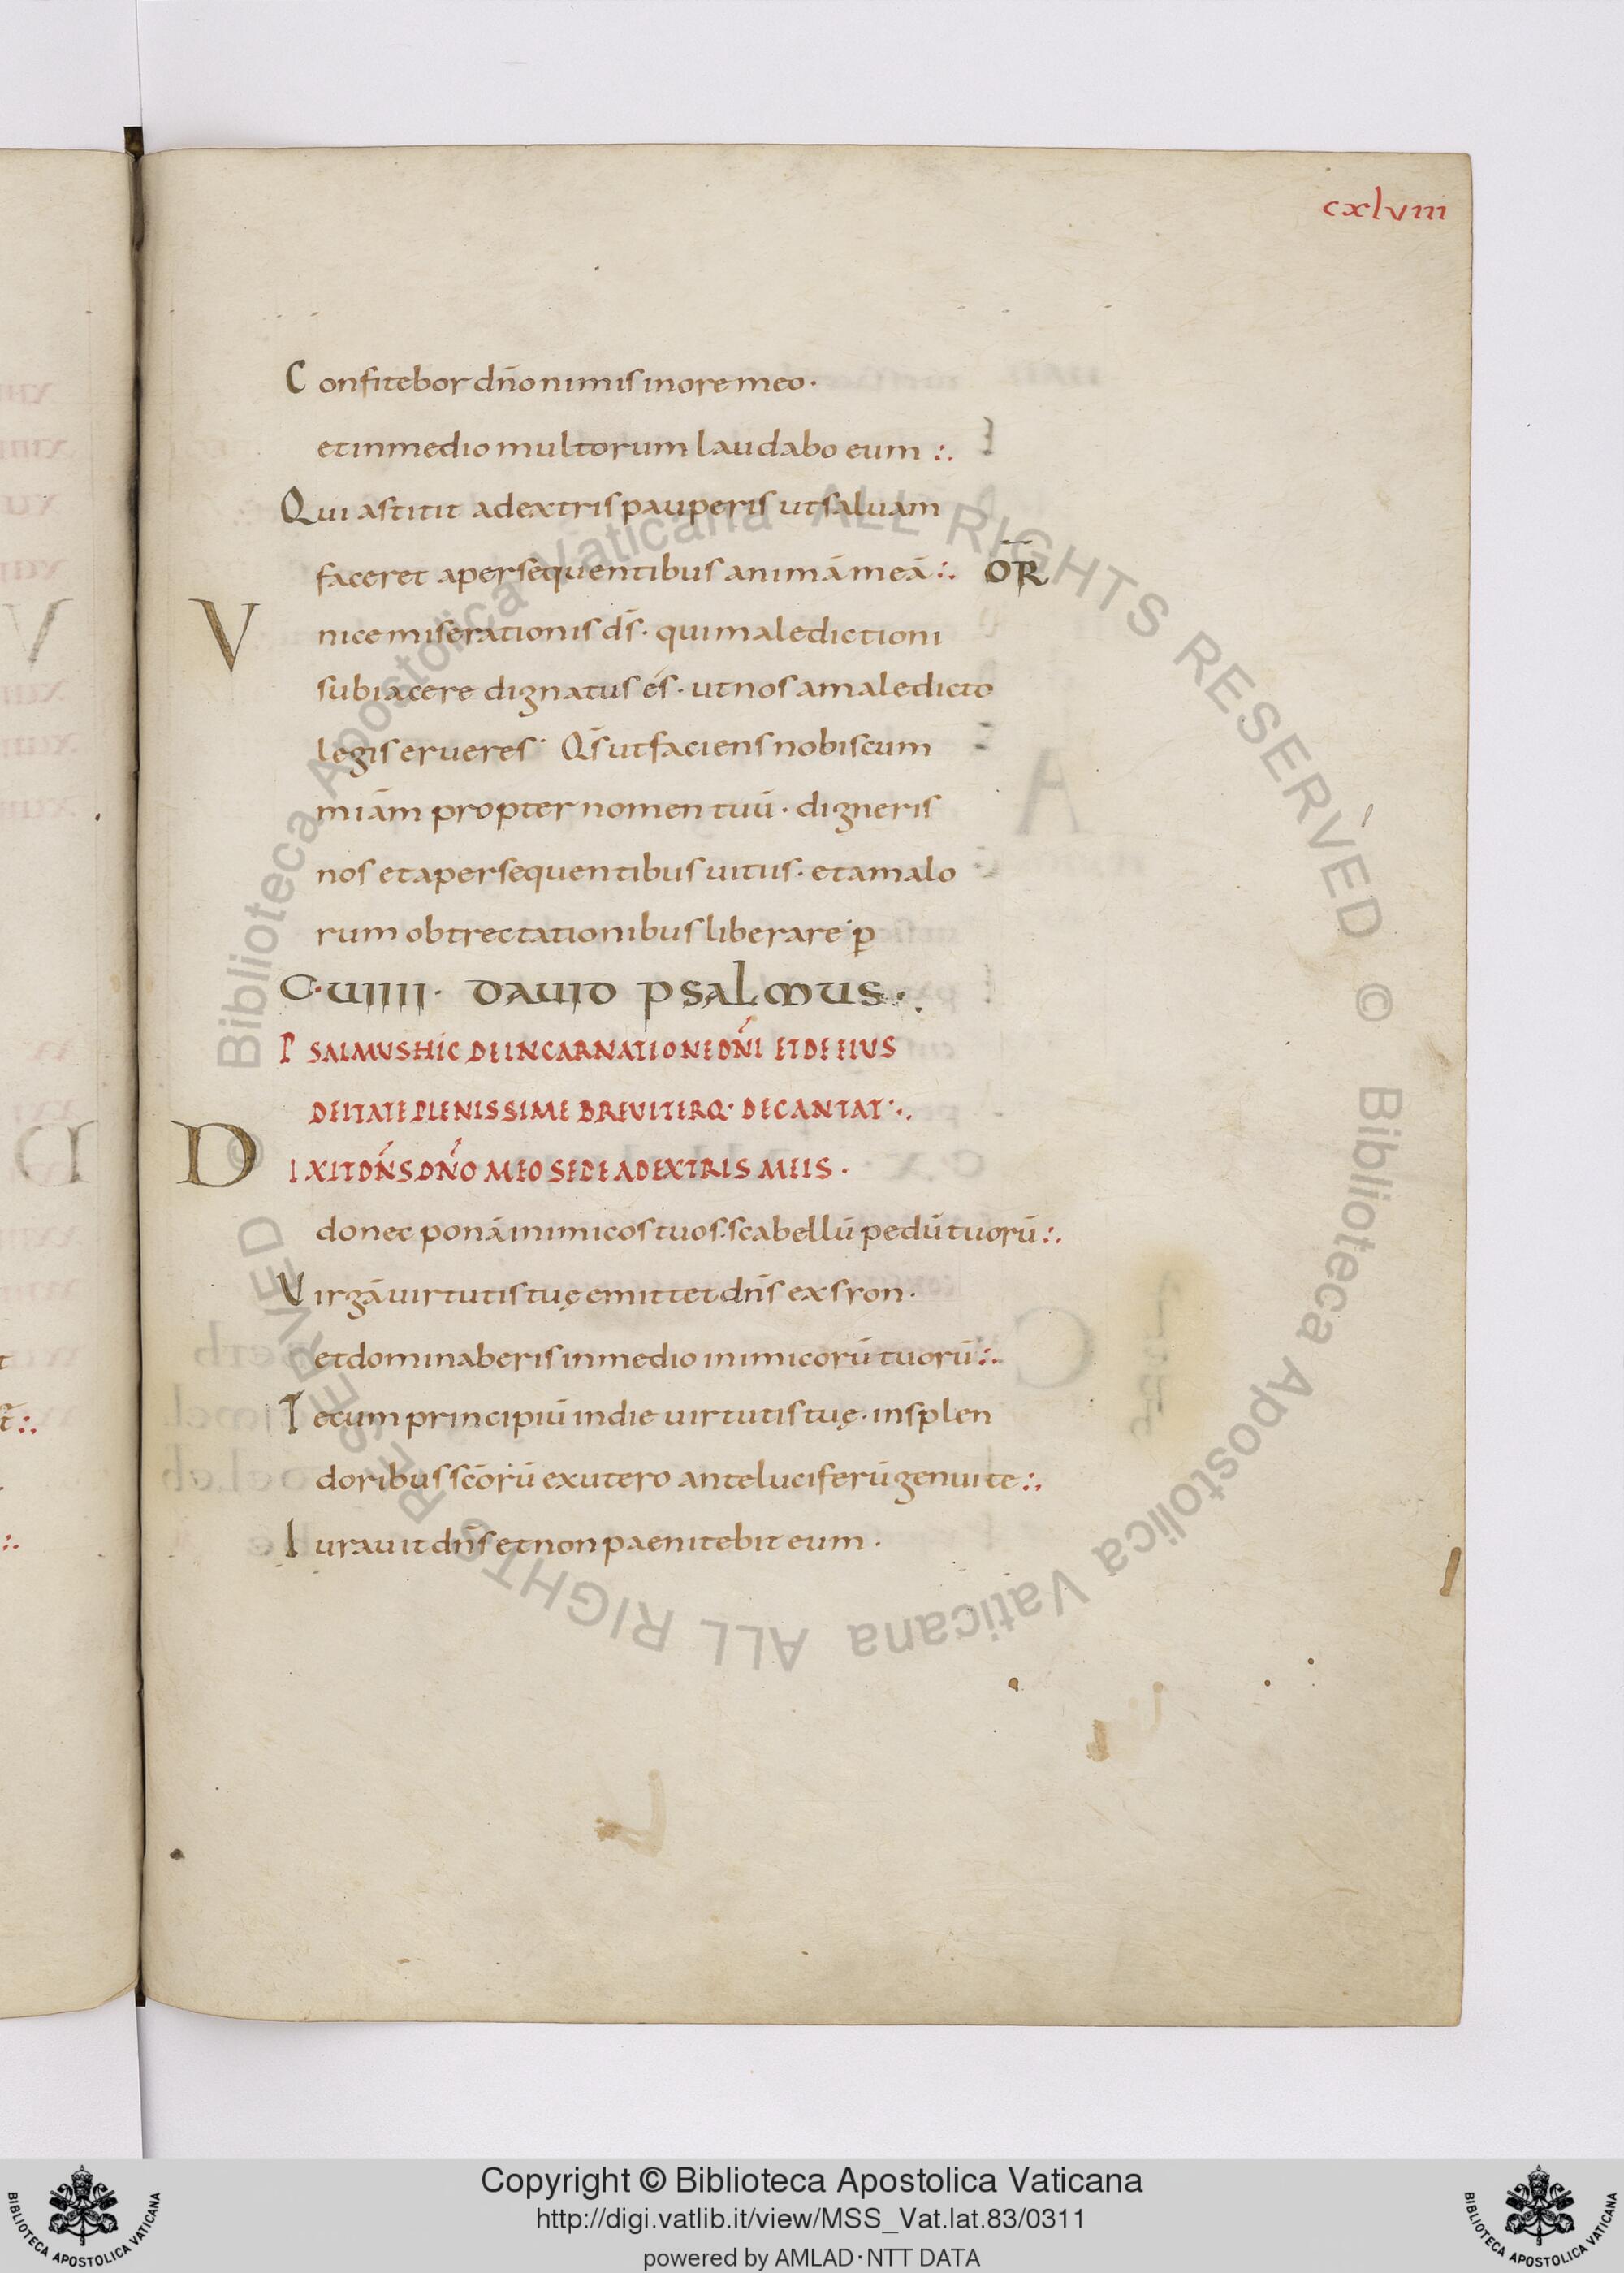 cxlviii
Confitebor dn̄o nimis in ore meo ·
et in medio multorum laudabo eum :.
Qui astitit a dextris pauperis ut saluam
faceret a persequentibus animā meā :. OR̄
Vnice miserationis dс̄ · qui maledictioni
subiacere dignatus es · ut nos a maledicto
legis erueres · Qs̄ ut faciens nobiscum
miām propter nomen tuū · digneris
nos et a persequentibus uitiis · et a malo
rum obtrectationibus liberare · p
C·UIIII· DAUID PSALMUS ·.
PSALMUS HIC DE INCARNATIONE DN̄I ET DE EIUS
DEITATE PLENISSIME BREVITERQ· DECANTAT :.
DIXIT DN̄S DN̄O MEO SEDE A DEXTRIS MEIS ·
donec ponā inimicos tuos · scabellū pedū tuorū :.
Virgā uirtutis tuę emittet dn̄s ex sion ·
et dominaberis in medio inimicorū tuorū :.
Tecum principiū in die uirtutis tuę · in splen
doribus scōrū ex utero ante luciferū genui te :.
Iurauit dn̄s et non paenitebit eum ·
Copyright © Biblioteca Apostolica Vaticana
http://digi.vatlib.it/view/MSS_Vat.lat.83/0311
powered by AMLAD·NTT DATA
Biblioteca Apostolica Vaticana ALL RIGHTS RESERVED ©
Biblioteca Apostolica Vaticana ALL RIGHTS RESERVED ©
BIBLIOTECA APOSTOLICA VATICANA
BIBLIOTECA APOSTOLICA VATICANA